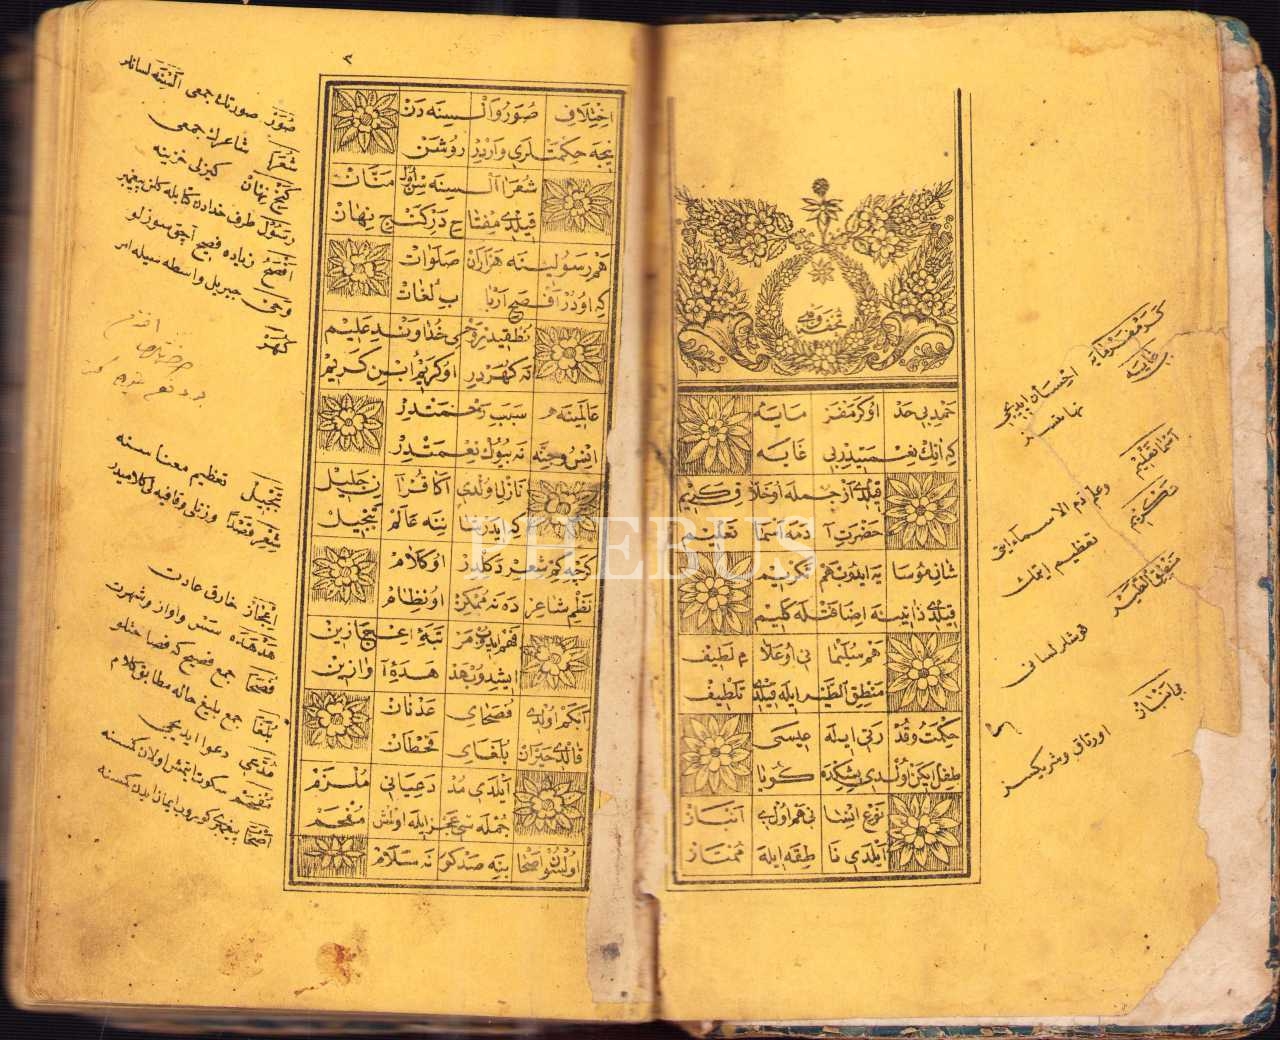 تحفۀ وهبی
حمد بی حد اول کرمفرمایه
که انك نعمتیدر بی غایه
قیلدی از جمله او خلاق کریم
حضرت آدمه اسما تعلیم
شان موسایه ایدوب هم تکریم
قیلدی ذاتینه اضافتله کلیم
هم سلیمانی او علام لطیف
منطق الطیر ایله قیلدی تلطیف
حکمت و قدرتی ایله عیسی
طفل ایکن اولدی بشکده کویا
نوع انسانی هم اول بی انباز
ایلدی ناطقه ایله ممتاز
کرمفرمایه احسان ایدیجی
بی غایه نهایتسز
اسما تعلیم
وعلم آدم الاسماء
تکریم تعظیم ایتمك
منطق الطیر قوشلر لسانی
بی انباز اورتاق و شریکسز
٢
اختلاف صور و السنه دن
نیجه حکمتلری واردر روشن
شعرا السنه سن اول منان
قیلدی مفتاح در کنج نهان
هم رسولینه هزاران صلوات
که اودر افصح ارباب لغات
نطقیدر وحی خداوند علیم
نه کهردر او کریم ابن کریم
عالمینه سبب رحمتدر
انس و جنه نه بیوك نعمتدر
نازل اولدی اکا قرآن جلیل
که ایدر شاننه عالم تبجیل
کرچه کم شعر دکلدر او کلام
نظم شاعرده نه ممکن او نظام
فهم ایدوب مرتبۀ اعجازین
ایشدوب هدهدۀ آوازین
ابکم اولدی فصحای عدنان
قالدی حیران بلغای قحطان
ایلدی مدعیانی ملزم
جمله سی عجز ایله اولمش مفحم
اولسون اصحابنه صد کونه سلام
صور صورتك جمعی السنه لسانلر
شعرا شاعرك جمعی
کنج نهان کیزلی خزینه
رسول طرف خدادن کتابله کلن پیغمبر
افصح زیاده فصیح آچق سوزلو
وحی جبریل واسطه سیله امر
کهر
تبجیل تعظیم معناسنه
شعر قصدا وزنلی و قافیه لی کلامیدر
اعجاز خارق عادت
هدهده سس و آواز و شهرت
فصحا جمع فصیح که فصاحتلو
بلغا جمع بلیغ حاله مطابق کلام
مدعی دعوا ایدیجی
مفحم سکوت ایتمش اولان کمسنه
اصحاب پیغمبری کوروب ایمان ایدن کمسنه
PHEBUS